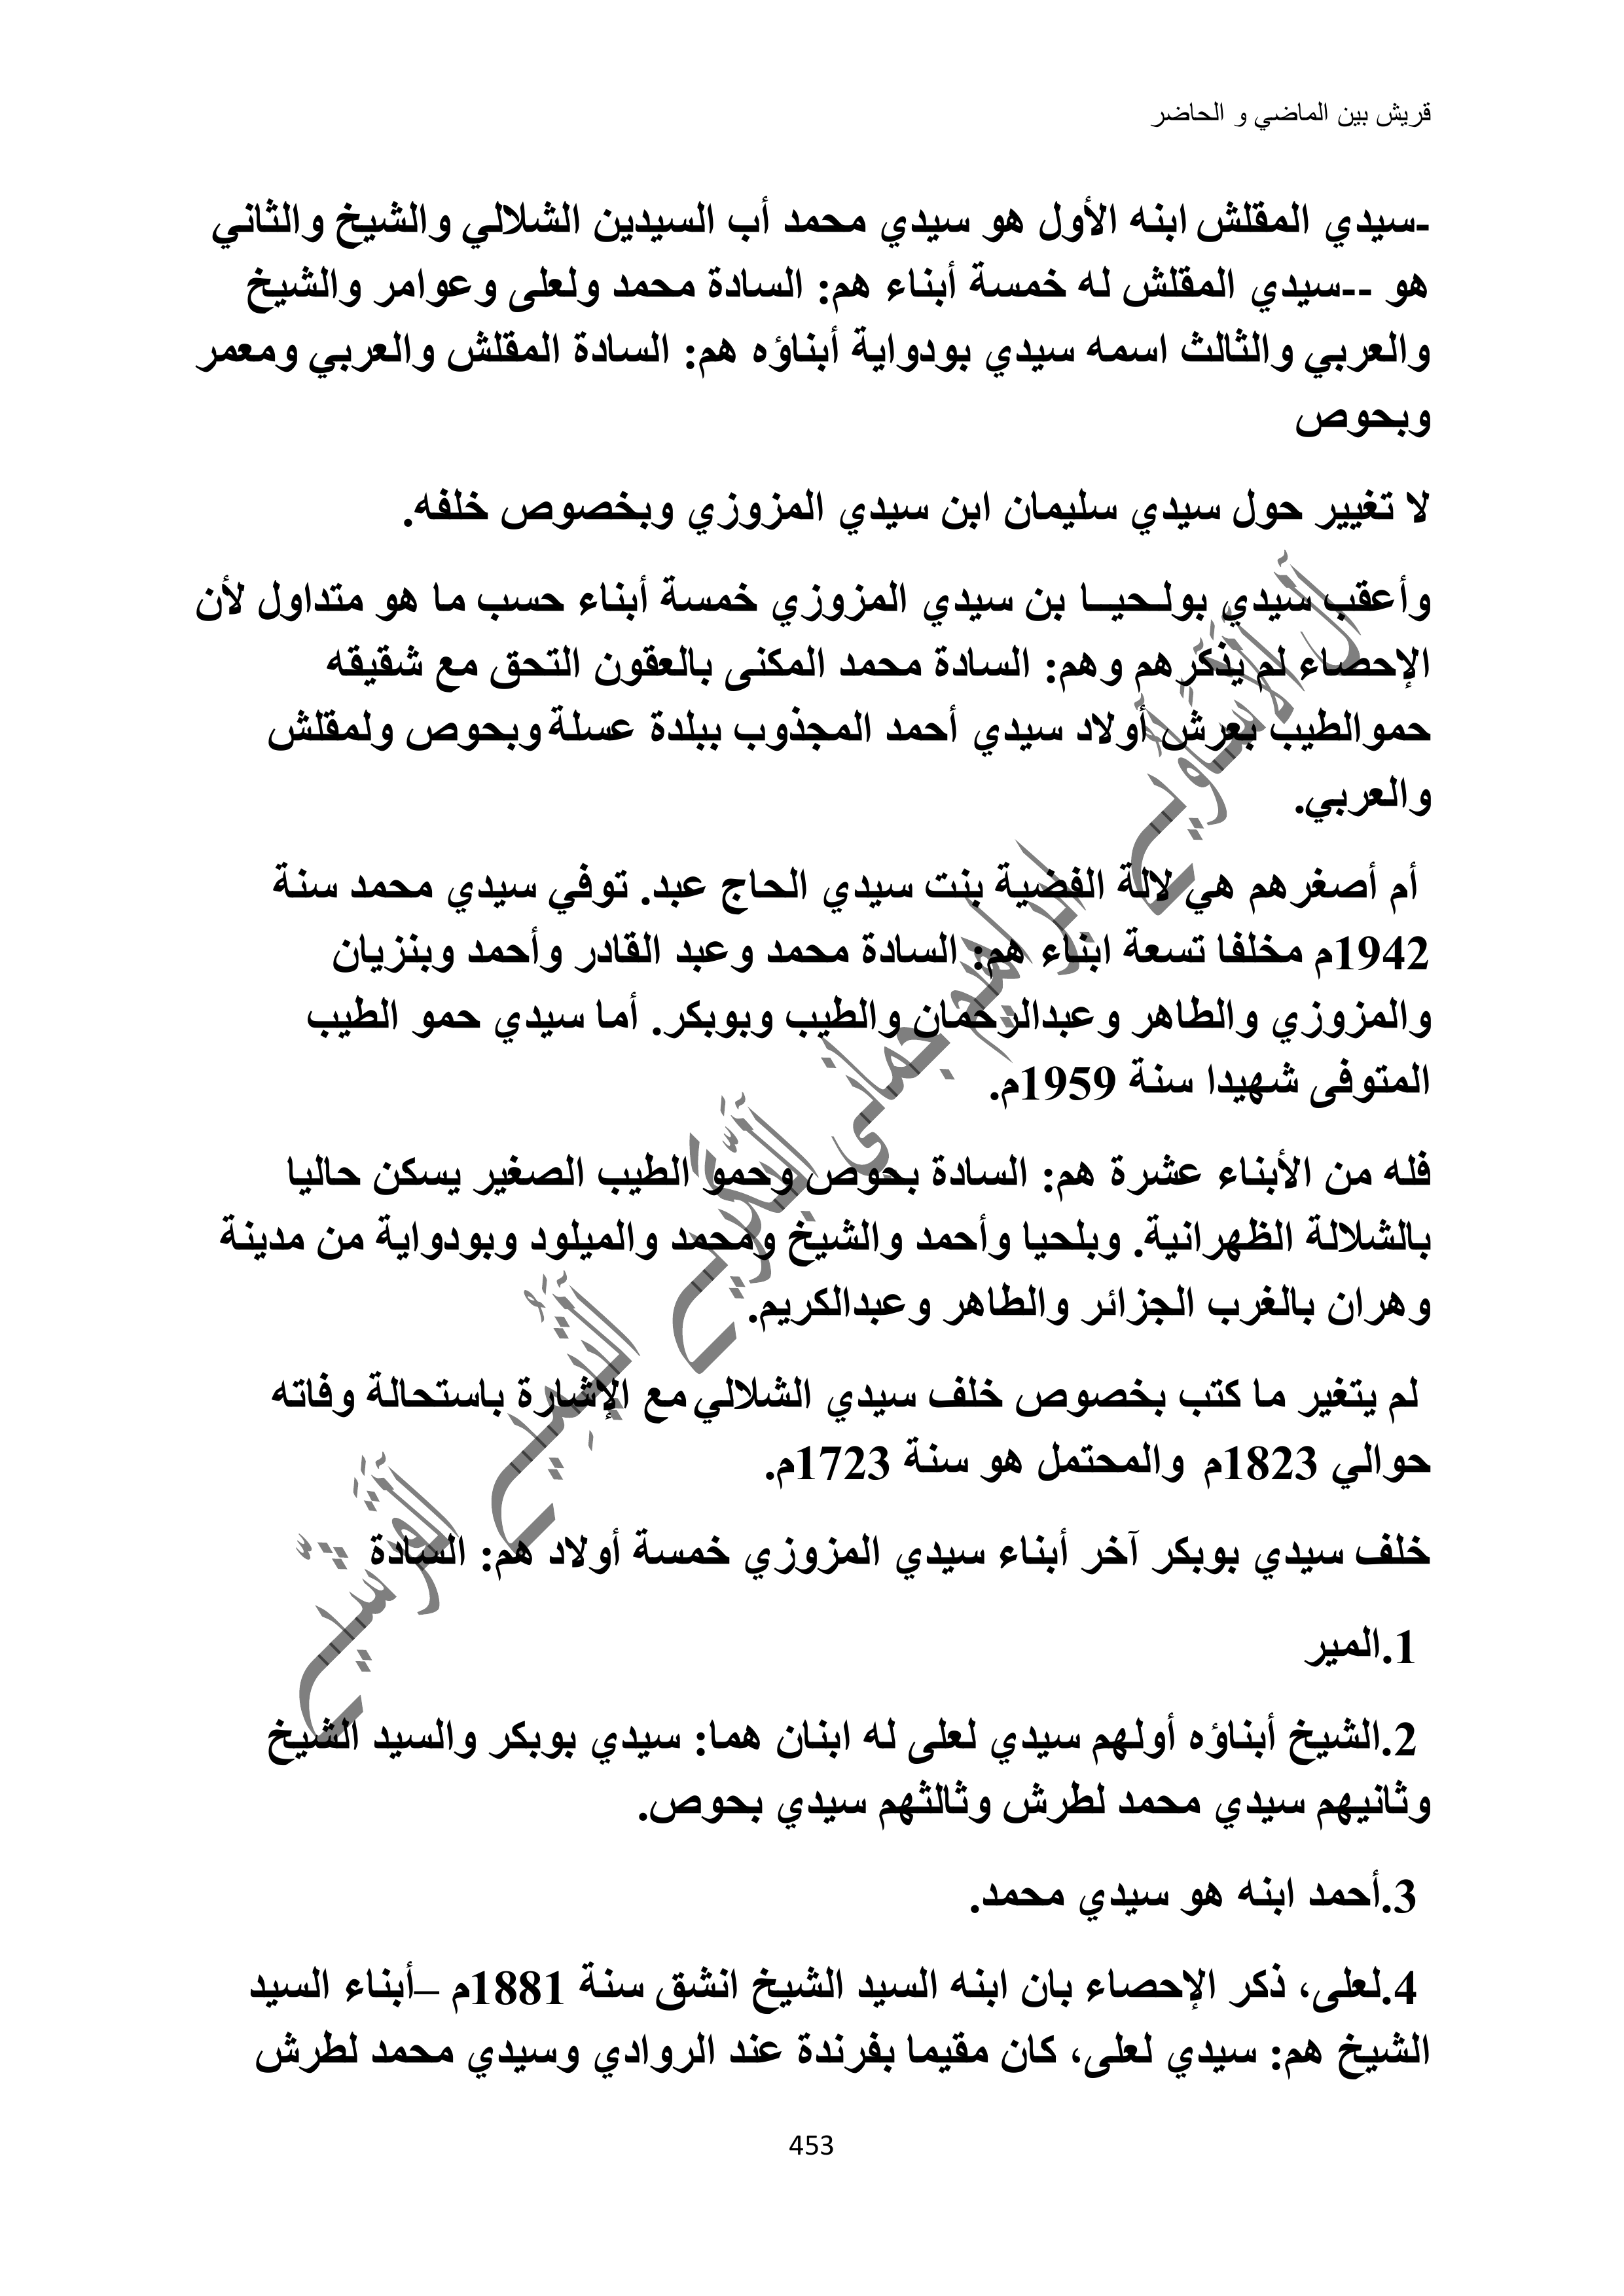 قريش بين الماضي و الحاضر
-سيدي المقلش ابنه الأول هو سيدي محمد أب السيدين الشلالي والشيخ والثاني
هو --سيدي المقلش له خمسة أبناء هم: السادة محمد ولعلى وعوامر والشيخ
والعربي والثالث اسمه سيدي بودواية أبناؤه هم: السادة المقلش والعربي ومعمر
وبحوص
لا تغيير حول سيدي سليمان ابن سيدي المزوزي وبخصوص خلفه.
وأعقب سيدي بولـحيــا بن سيدي المزوزي خمسة أبناء حسب ما هو متداول لأن
الإحصاء لم يذكرهم وهم: السادة محمد المكنى بالعقون التحق مع شقيقه
حموالطيب بعرش أولاد سيدي أحمد المجذوب ببلدة عسلة وبحوص ولمقلش
والعربي.
أم أصغرهم هي لالة الفضية بنت سيدي الحاج عبد. توفي سيدي محمد سنة
1942م مخلفا تسعة ابناء هم: السادة محمد وعبد القادر وأحمد وبنزيان
والمزوزي والطاهر وعبدالرحمان والطيب وبوبكر. أما سيدي حمو الطيب
المتوفى شهيدا سنة 1959م.
فله من الأبناء عشرة هم: السادة بحوص وحمو الطيب الصغير يسكن حاليا
بالشلالة الظهرانية. وبلحيا وأحمد والشيخ ومحمد والميلود وبودواية من مدينة
وهران بالغرب الجزائر والطاهر وعبدالكريم.
لم يتغير ما كتب بخصوص خلف سيدي الشلالي مع الإشارة باستحالة وفاته
حوالي 1823م والمحتمل هو سنة 1723م.
خلف سيدي بوبكر آخر أبناء سيدي المزوزي خمسة أولاد هم: السادة
1.المير
2.الشيخ أبناؤه أولهم سيدي لعلى له ابنان هما: سيدي بوبكر والسيد الشيخ
وثانيهم سيدي محمد لطرش وثالثهم سيدي بحوص.
3.أحمد ابنه هو سيدي محمد.
4.لعلى، ذكر الإحصاء بان ابنه السيد الشيخ انشق سنة 1881م –أبناء السيد
الشيخ هم: سيدي لعلى، كان مقيما بفرندة عند الروادي وسيدي محمد لطرش
453